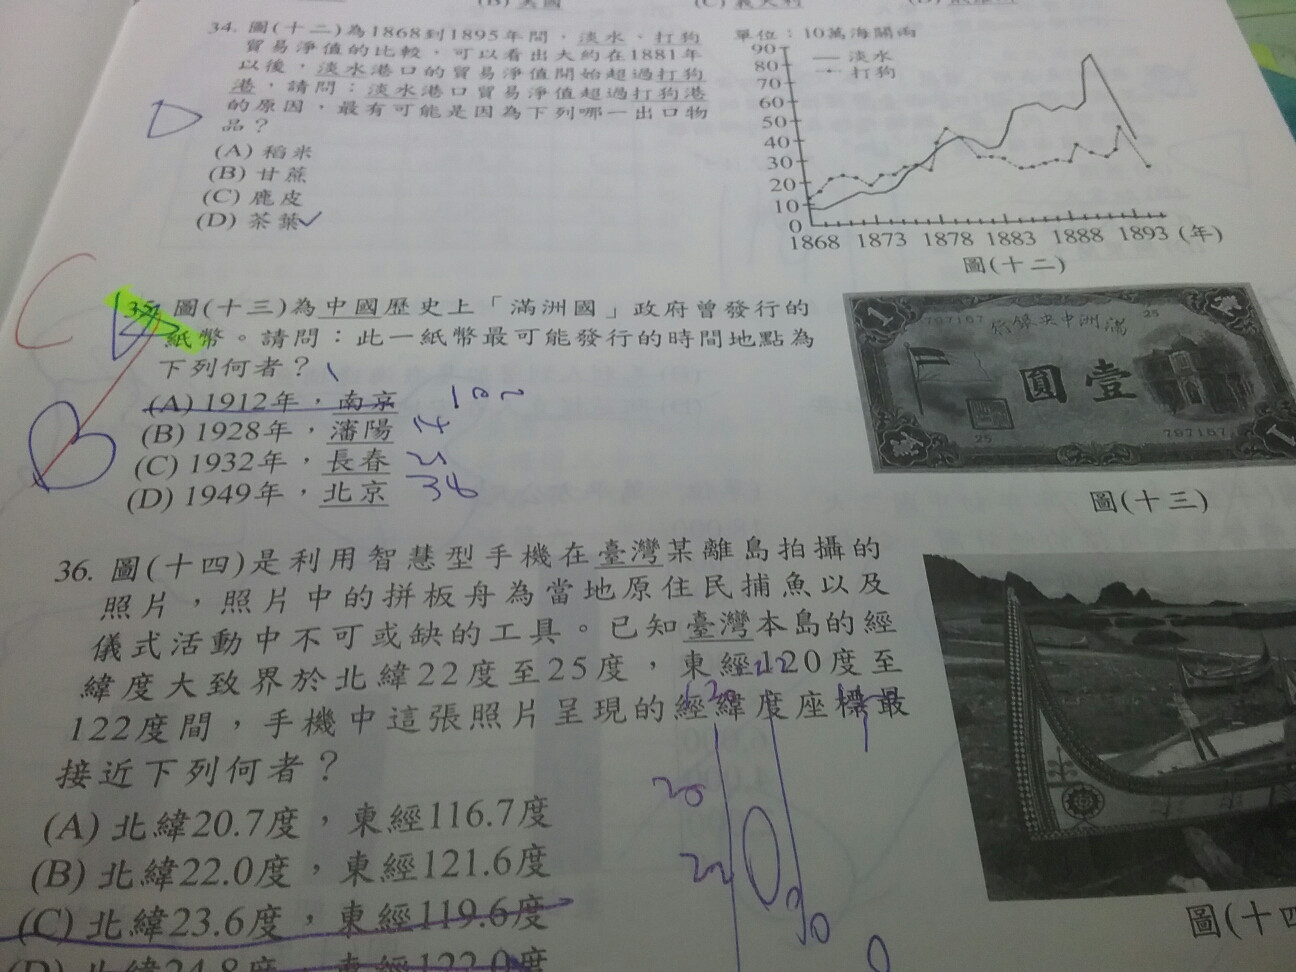 (B) 英國 (C) 義大利
34. 圖(十二)為1868到1895年間，淡水、打狗
貿易淨值的比較，可以看出大約在1881年
以後，淡水港口的貿易淨值開始超過打狗
港，請問：淡水港口貿易淨值超過打狗港
的原因，最有可能是因為下列哪一出口物
品？
(A) 稻米
(B) 甘蔗
(C) 鹿皮
(D) 茶葉
D
單位：10萬海關兩
淡水
打狗
90
80
70
60
50
40
30
20
10
0
1868 1873 1878 1883 1888 1893 (年)
圖(十二)
C
35. 圖(十三)為中國歷史上「滿洲國」政府曾發行的
紙幣。請問：此一紙幣最可能發行的時間地點為
下列何者？
(A) 1912年，南京
(B) 1928年，瀋陽 14
(C) 1932年，長春 21
(D) 1949年，北京 38
B
1
797167 25
滿洲中央銀行
壹圓
25 797167
圖(十三)
36. 圖(十四)是利用智慧型手機在臺灣某離島拍攝的
照片，照片中的拼板舟為當地原住民捕魚以及
儀式活動中不可或缺的工具。已知臺灣本島的經
緯度大致界於北緯22度至25度，東經120度至
122度間，手機中這張照片呈現的經緯度座標最
接近下列何者？
(A) 北緯20.7度，東經116.7度
(B) 北緯22.0度，東經121.6度
(C) 北緯23.6度，東經119.6度
(D) 北緯24.8度，東經122.0度
120 122
20
22
圖(十四